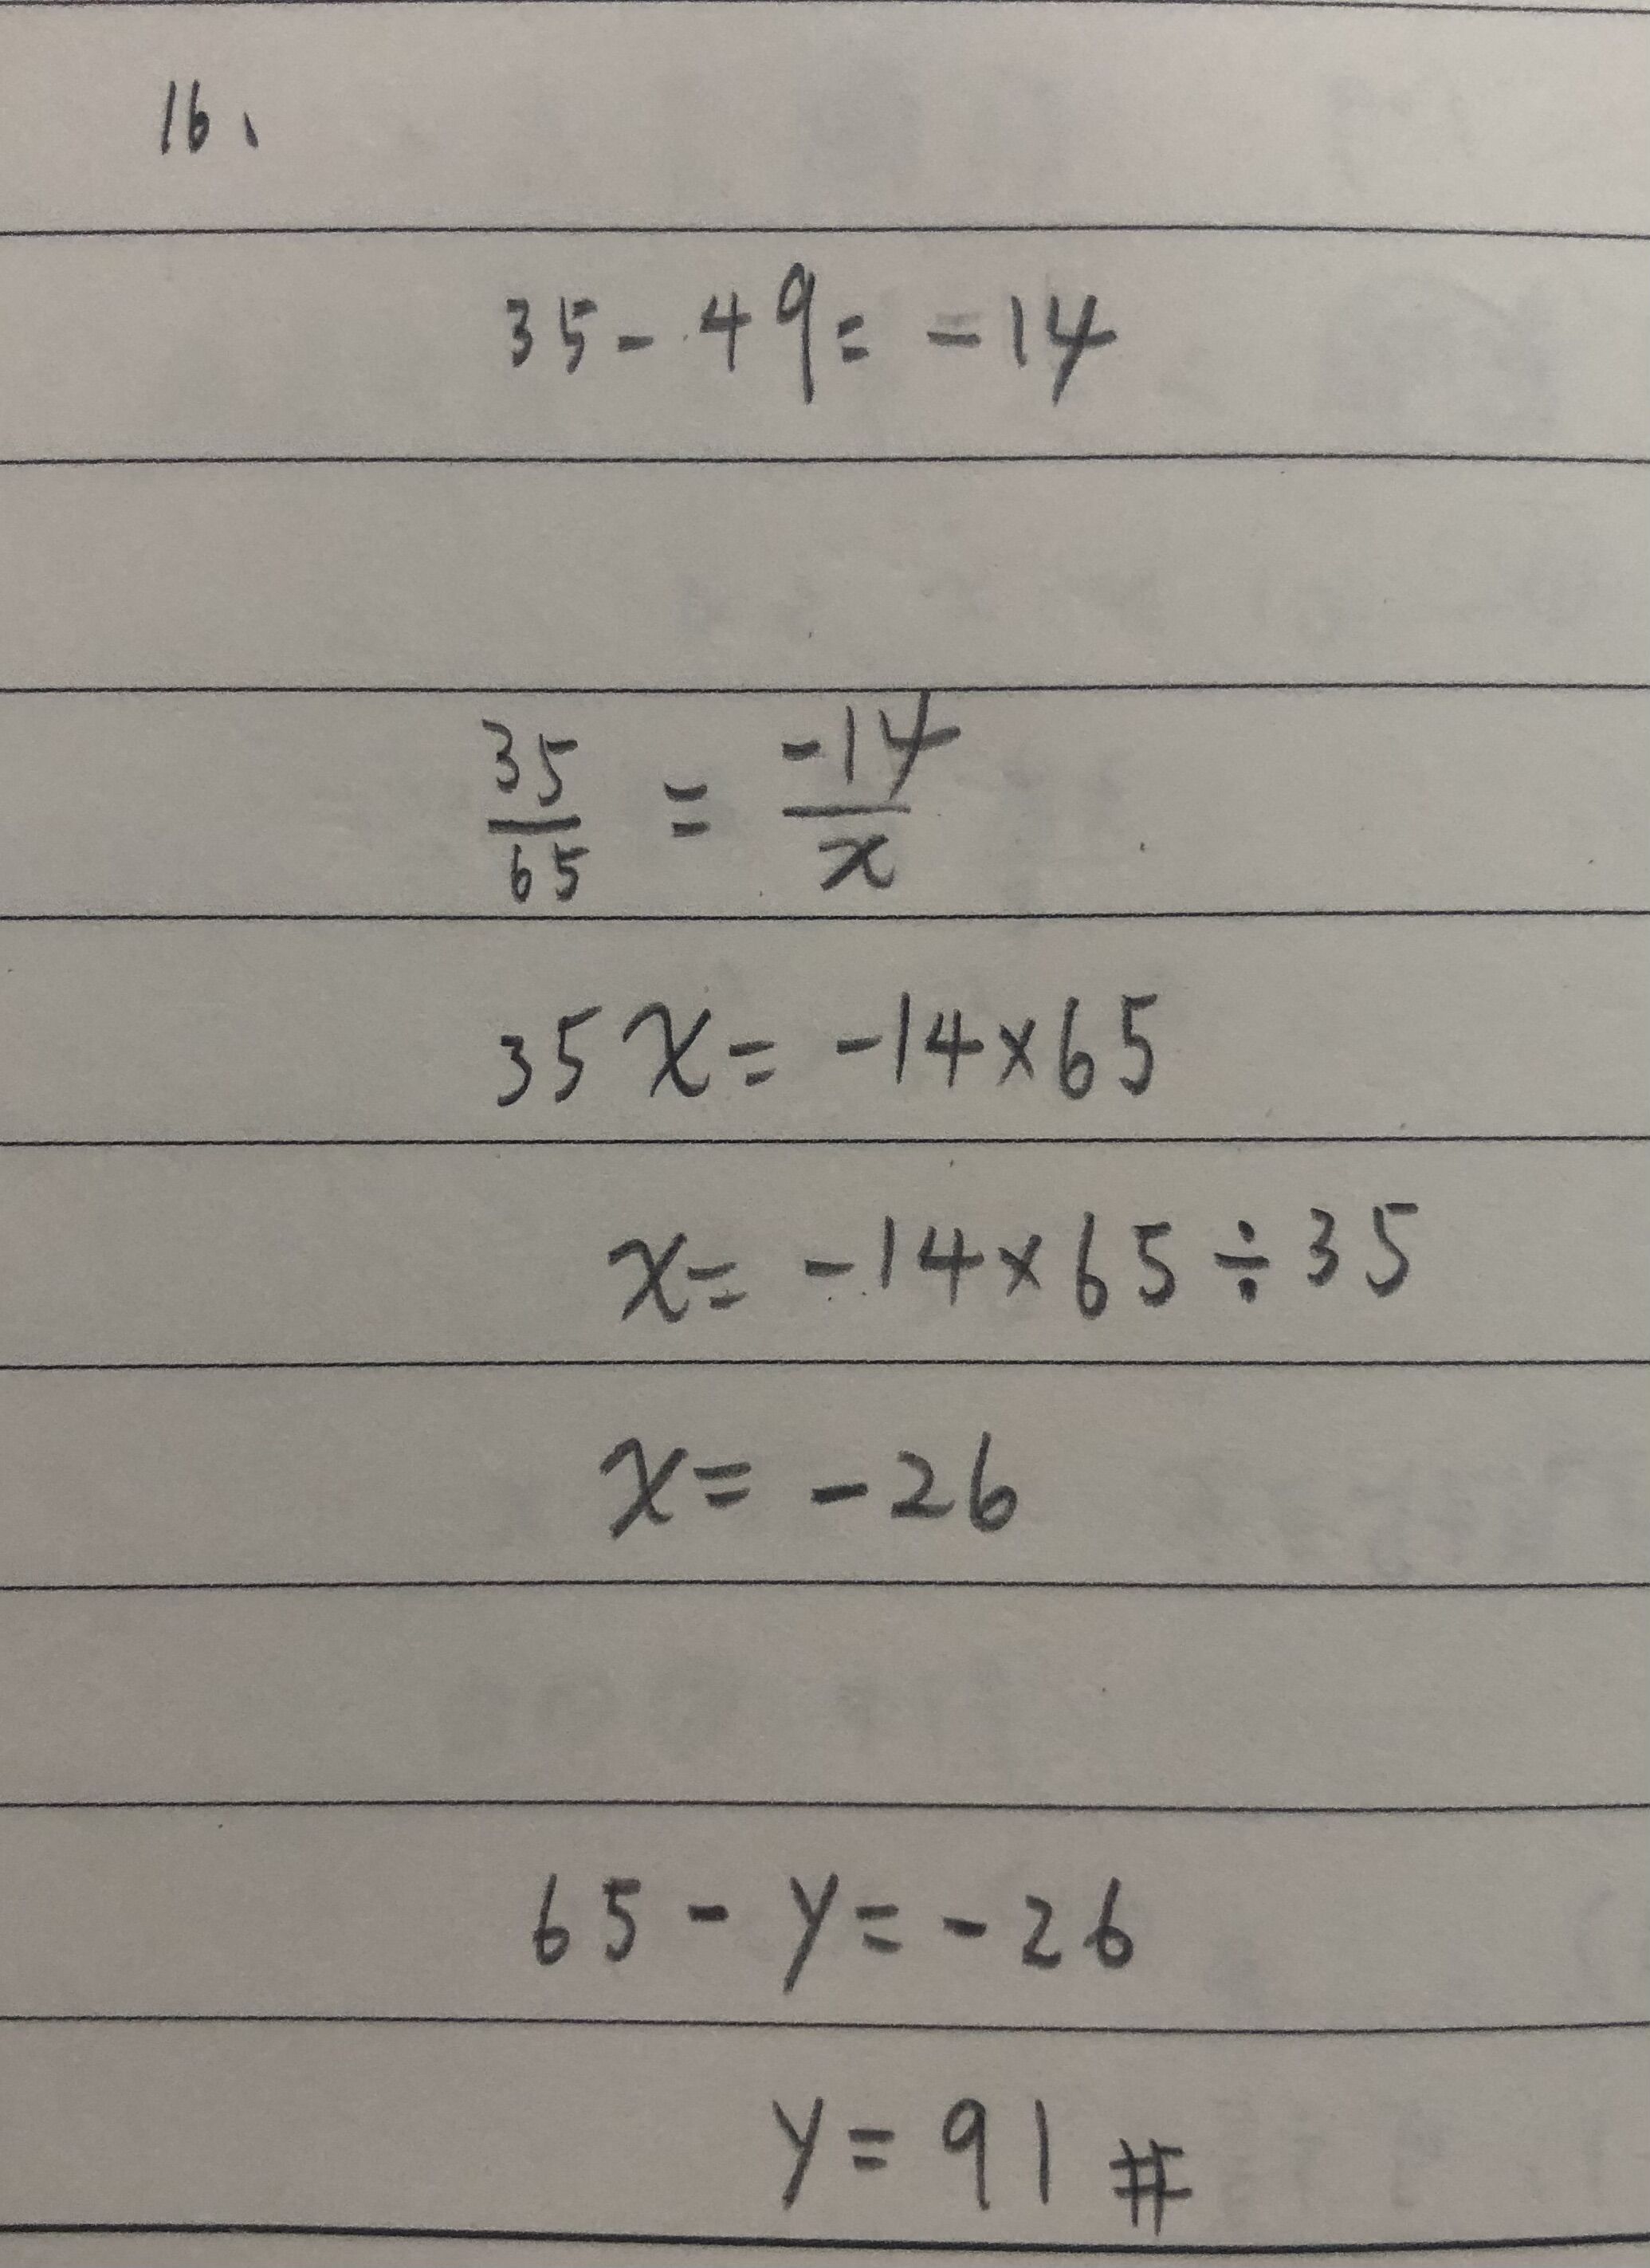 16.
35 - 49 = -14
35/65 = -14/x
35x = -14×65
x = -14×65÷35
x = -26
65 - y = -26
y = 91 #